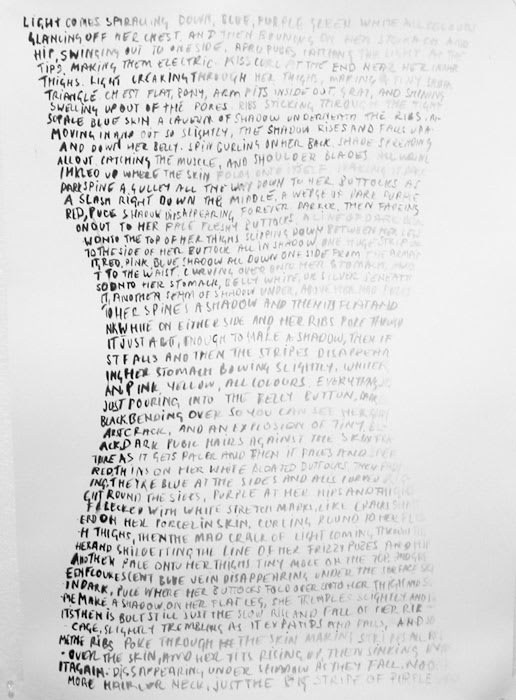 LIGHT COMES SPIRALLING DOWN, BLUE, PURPLE GREEN WHITE ALL COLOURS
GLANCING OFF HER CHEST AND THEN BOUNCING ON HER STOMACH AND
HIP, SWINGING OUT TO ONE SIDE, PUBES CATCHING THE LIGHT AT THE
TIPS, MAKING THEM ELECTRIC. KISS CURL AT THE END NEAR HER INNER
THIGHS. LIGHT CREAKING THROUGH HER THIGHS, MAKING A TINY
TRIANGLE CHEST FLAT, BONY, ARM PITS INSIDE OUT, GRAY, AND SHINING
SWELLING UP OUT OF THE PORES RIBS STICKING THROUGH THE
PALE BLUE SKIN A CAVERN OF SHADOW UNDERNEATH THE RIBS.
MOVING IN AND OUT SO SLIGHTLY, THE SHADOW RISES AND FALLS UP
AND DOWN HER BELLY. SPIN CURLING ON HER BACK. SHADE SPREADING
ALL OUT. CATCHING THE MUSCLE, AND SHOULDER BLADES
UP WHERE THE SKIN FOLDS ONTO ITSELF
DARK SPINE A GULLEY ALL THE WAY DOWN TO HER BUTTOCKS AS
A SLASH RIGHT DOWN THE MIDDLE, A WEDGE OF DARK PURPLE
RED, PUCE SHADOW DISAPPEARING, FOREVER DARKER, THEN FADING
ON OUT TO HER PALE FLESHY BUTTOCKS A LINE OF DARK
ONTO THE TOP OF HER THIGHS SLIPPING DOWN BETWEEN HER LEGS
TO THE SIDE OF HER BUTTOCK ALL IN SHADOW ONE HUGE STRIP OF
IT, RED, PINK, BLUE, SHADOW ALL DOWN ONE SIDE FROM THE ARMPIT
T TO THE WAIST. CURVING OVER ONTO HER STOMACH, AND
SO ONTO HER STOMACH, BELLY WHITE, OR SILVER BENEATH
IT, ANOTHER SEAM OF SHADOW UNDER, ABOVE HER
TO HER SPINES A SHADOW AND THEN ITS FLAT AND
WHITE ON EITHER SIDE AND HER RIBS POKE THROUGH
IT JUST A BIT, ENOUGH TO MAKE A SHADOW, THEN IT
ST FALLS AND THEN THE STRIPES DISAPPEAR
ING HER STOMACH BOWING SLIGHTLY, WHITE
AND PINK YELLOW, ALL COLOURS, EVERYTHING
JUST POURING INTO THE BELLY BUTTON, DARK
BLACK BENDING OVER SO YOU CAN SEE HER
ARSE CRACK, AND AN EXPLOSION OF TINY BL
ACK, DARK PUBIC HAIRS AGAINST THE SKIN
THERE AS IT GETS PALER AND THEN IT FADES AND
RED THINS ON HER WHITE BLOATED BUTTOCKS THEN FAD
ING, THEY'RE BLUE AT THE SIDES AND ALL
ROUND THE SIDES, PURPLE AT HER HIPS AND THIGHS
FLECKED WITH WHITE STRETCH MARKS, LIKE CRACKS
ON HER PORCELIN SKIN, CURLING ROUND TO HER
THIGHS, THEN THE MAD CRACK OF LIGHT COMING, THROUGH
HER AND SHILOETTING THE LINE OF HER FRIZZY PUBES AND
ANOTHER PALE ONTO HER THIGHS TINY MOLE ON THE TOP, AND
FLOURESCENT BLUE VEIN DISAPPEARING UNDER THE SURFACE
IN DARK, PUCE WHERE HER BUTTOCKS FOLD OVER ONTO HER THIGH AND
MAKE A SHADOW, ON HER FLAT LEG, SHE TREMBLES SLIGHTLY AND
ITS THEN IS BUT STILL JUST THE SLOW RISE AND FALL OF HER RIB
CAGE, SLIGHTLY TREMBLING AS IT EXPANDS AND FALLS, AND SO
THE RIBS POKE THROUGH THE SKIN MAKING STRIPES ALL
OVER THE SKIN, AND HER TITS RISING UP, THEN SINKING
IT AGAIN. DISSAPPEARING UNDER SHADOW AS THEY FALL. NO
MORE HAIR, OR NECK, JUST THE BIG STRIPE OF PURPLE